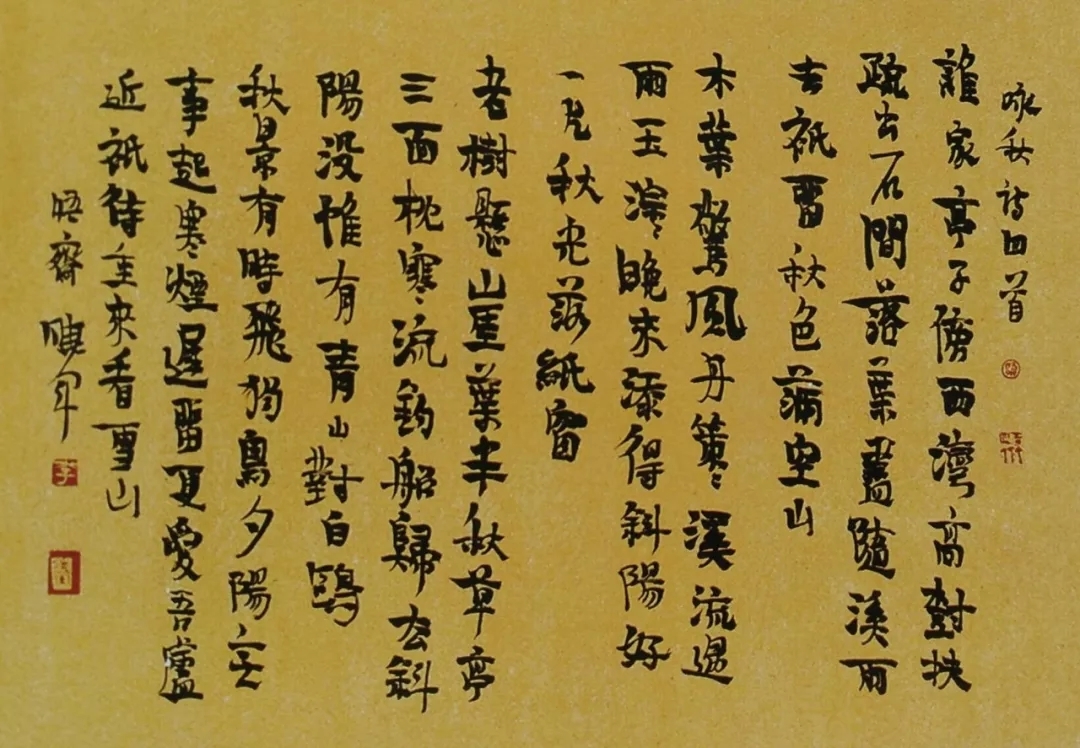 咏秋诗四首
誰家亭子傍西灣高對扶
疏出石間落葉盡隨溪雨
去祇留秋色滿空山
木葉驚風丹策策溪流過
雨玉淙淙晚來添得斜陽好
一片秋光落紙窗
老樹懸崖葉半秋草亭
三面枕寒流釣船歸去斜
陽没惟有青山對白鷗
秋景有時飛獨鳥夕陽無
事起寒煙遲留更愛吾廬
近祇待重來看雪山
晤齋
李